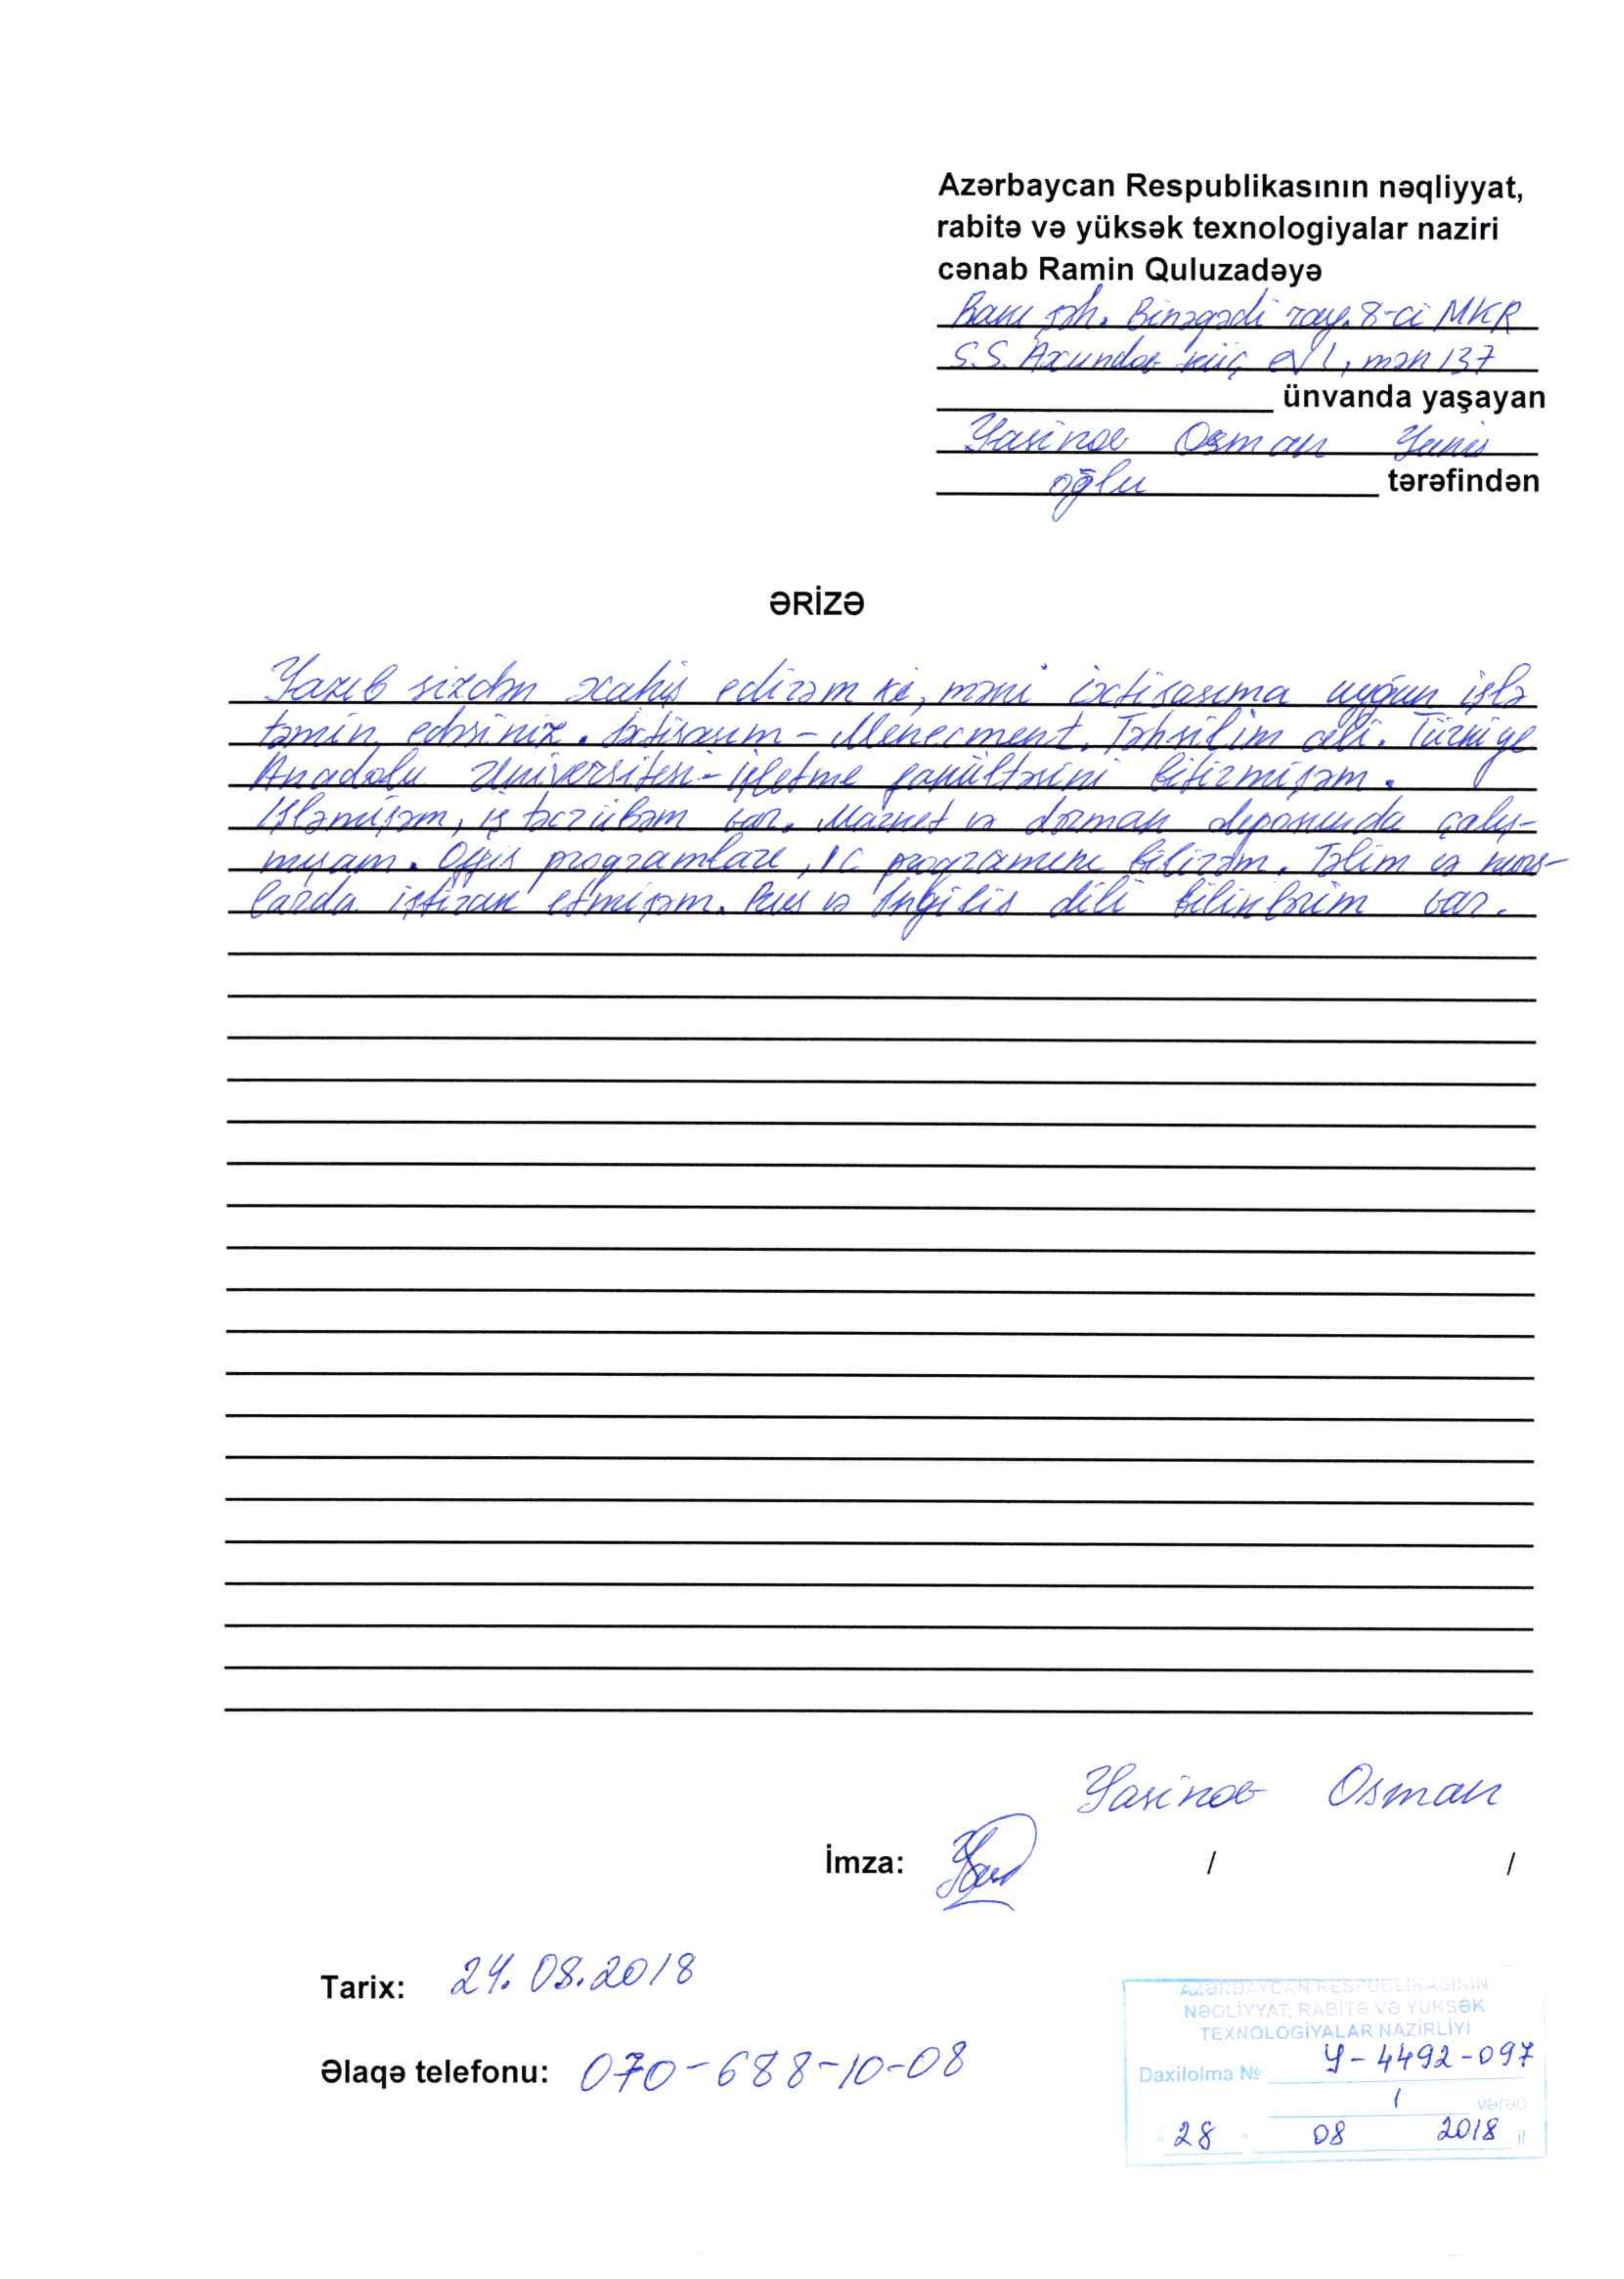 Azərbaycan Respublikasının nəqliyyat,
rabitə və yüksək texnologiyalar naziri
cənab Ramin Quluzadəyə
Bakı şəh. Binəqədi ray. 8-ci MKR
S.S. Axundov küç, ev 1, mən 137
ünvanda yaşayan
Yasinov Osman Yunis
oğlu tərəfindən
ƏRİZƏ
Yazıb sizdən xahiş edirəm ki, məni ixtisasıma uyğun işlə
təmin edəsiniz. İxtisasım - Menecment. Təhsilim ali. Türkiye
Anadolu Universitesi - işletme fakültəsini bitirmişəm.
İşləmişəm, iş təcrübəm var. Market və dərman deposunda çalış-
mışam. Ofis proqramları, 1C proqramını bilirəm. Təlim və kurs-
larda iştirak etmişəm. Rus və İngilis dili biliklərim var.
Yasinov Osman
İmza: / /
Tarix: 24.08.2018
Əlaqə telefonu: 070-688-10-08
AZƏRBAYCAN RESPUBLİKASININ
NƏQLİYYAT, RABİTƏ VƏ YÜKSƏK
TEXNOLOGİYALAR NAZİRLİYİ
Daxilolma № Y-4492-097
1 vərəq
28 08 2018 il